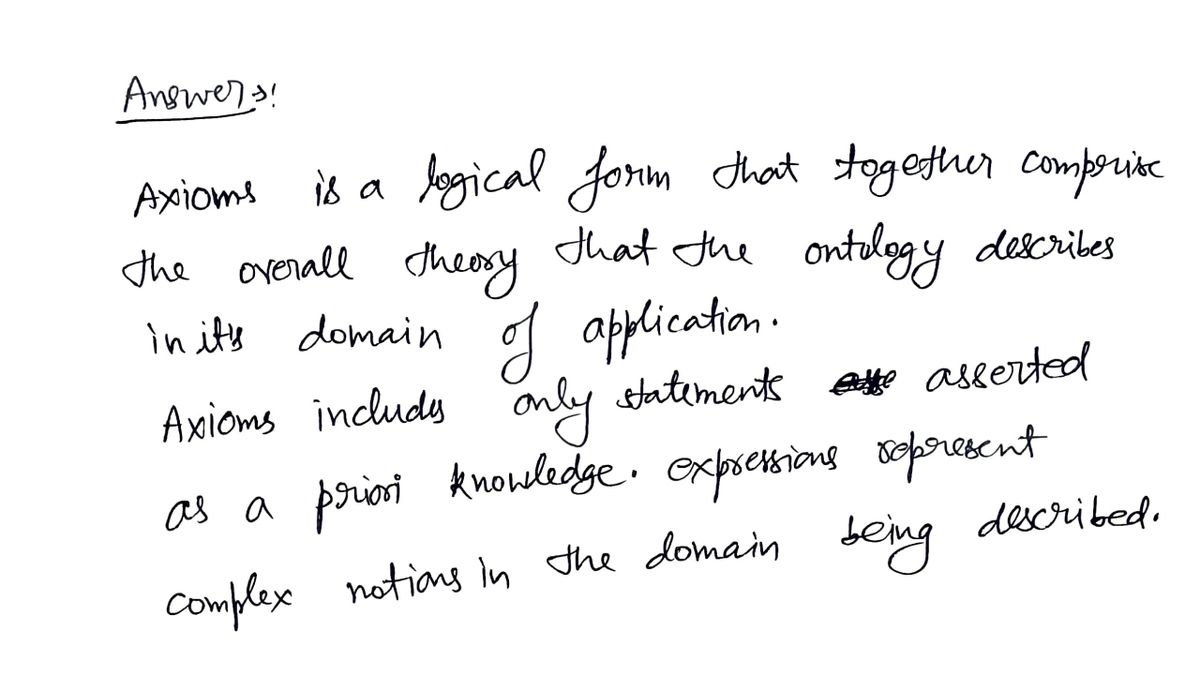 Answer →!
Axioms is a logical form that together comprise
the overall theory that the ontology describes
in its domain of application.
Axioms includes only statements asserted
as a priori knowledge. expressions represent
complex notions in the domain being described.